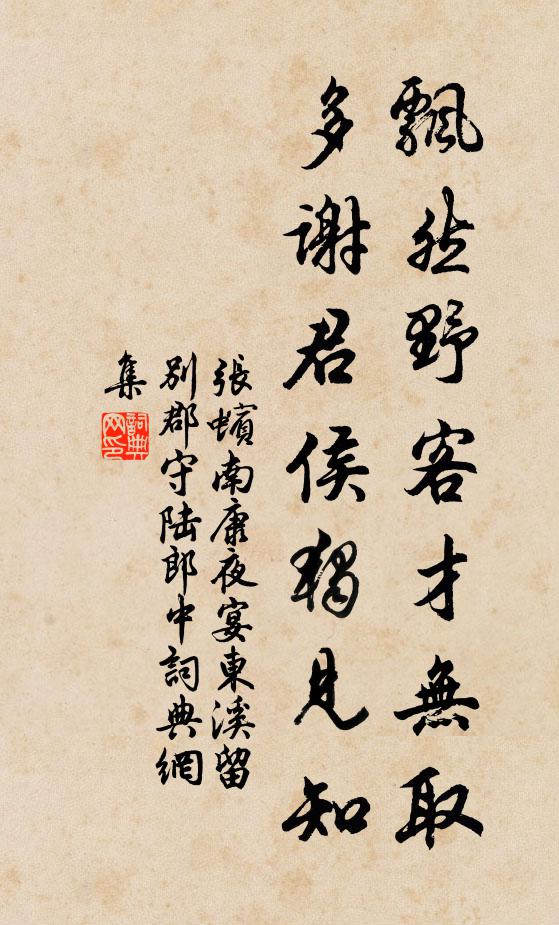 飄然野客才無取
多謝君侯獨見知
張蠙南康夜宴東溪留
別郡守陸郎中詞典網
集
詞典
网印